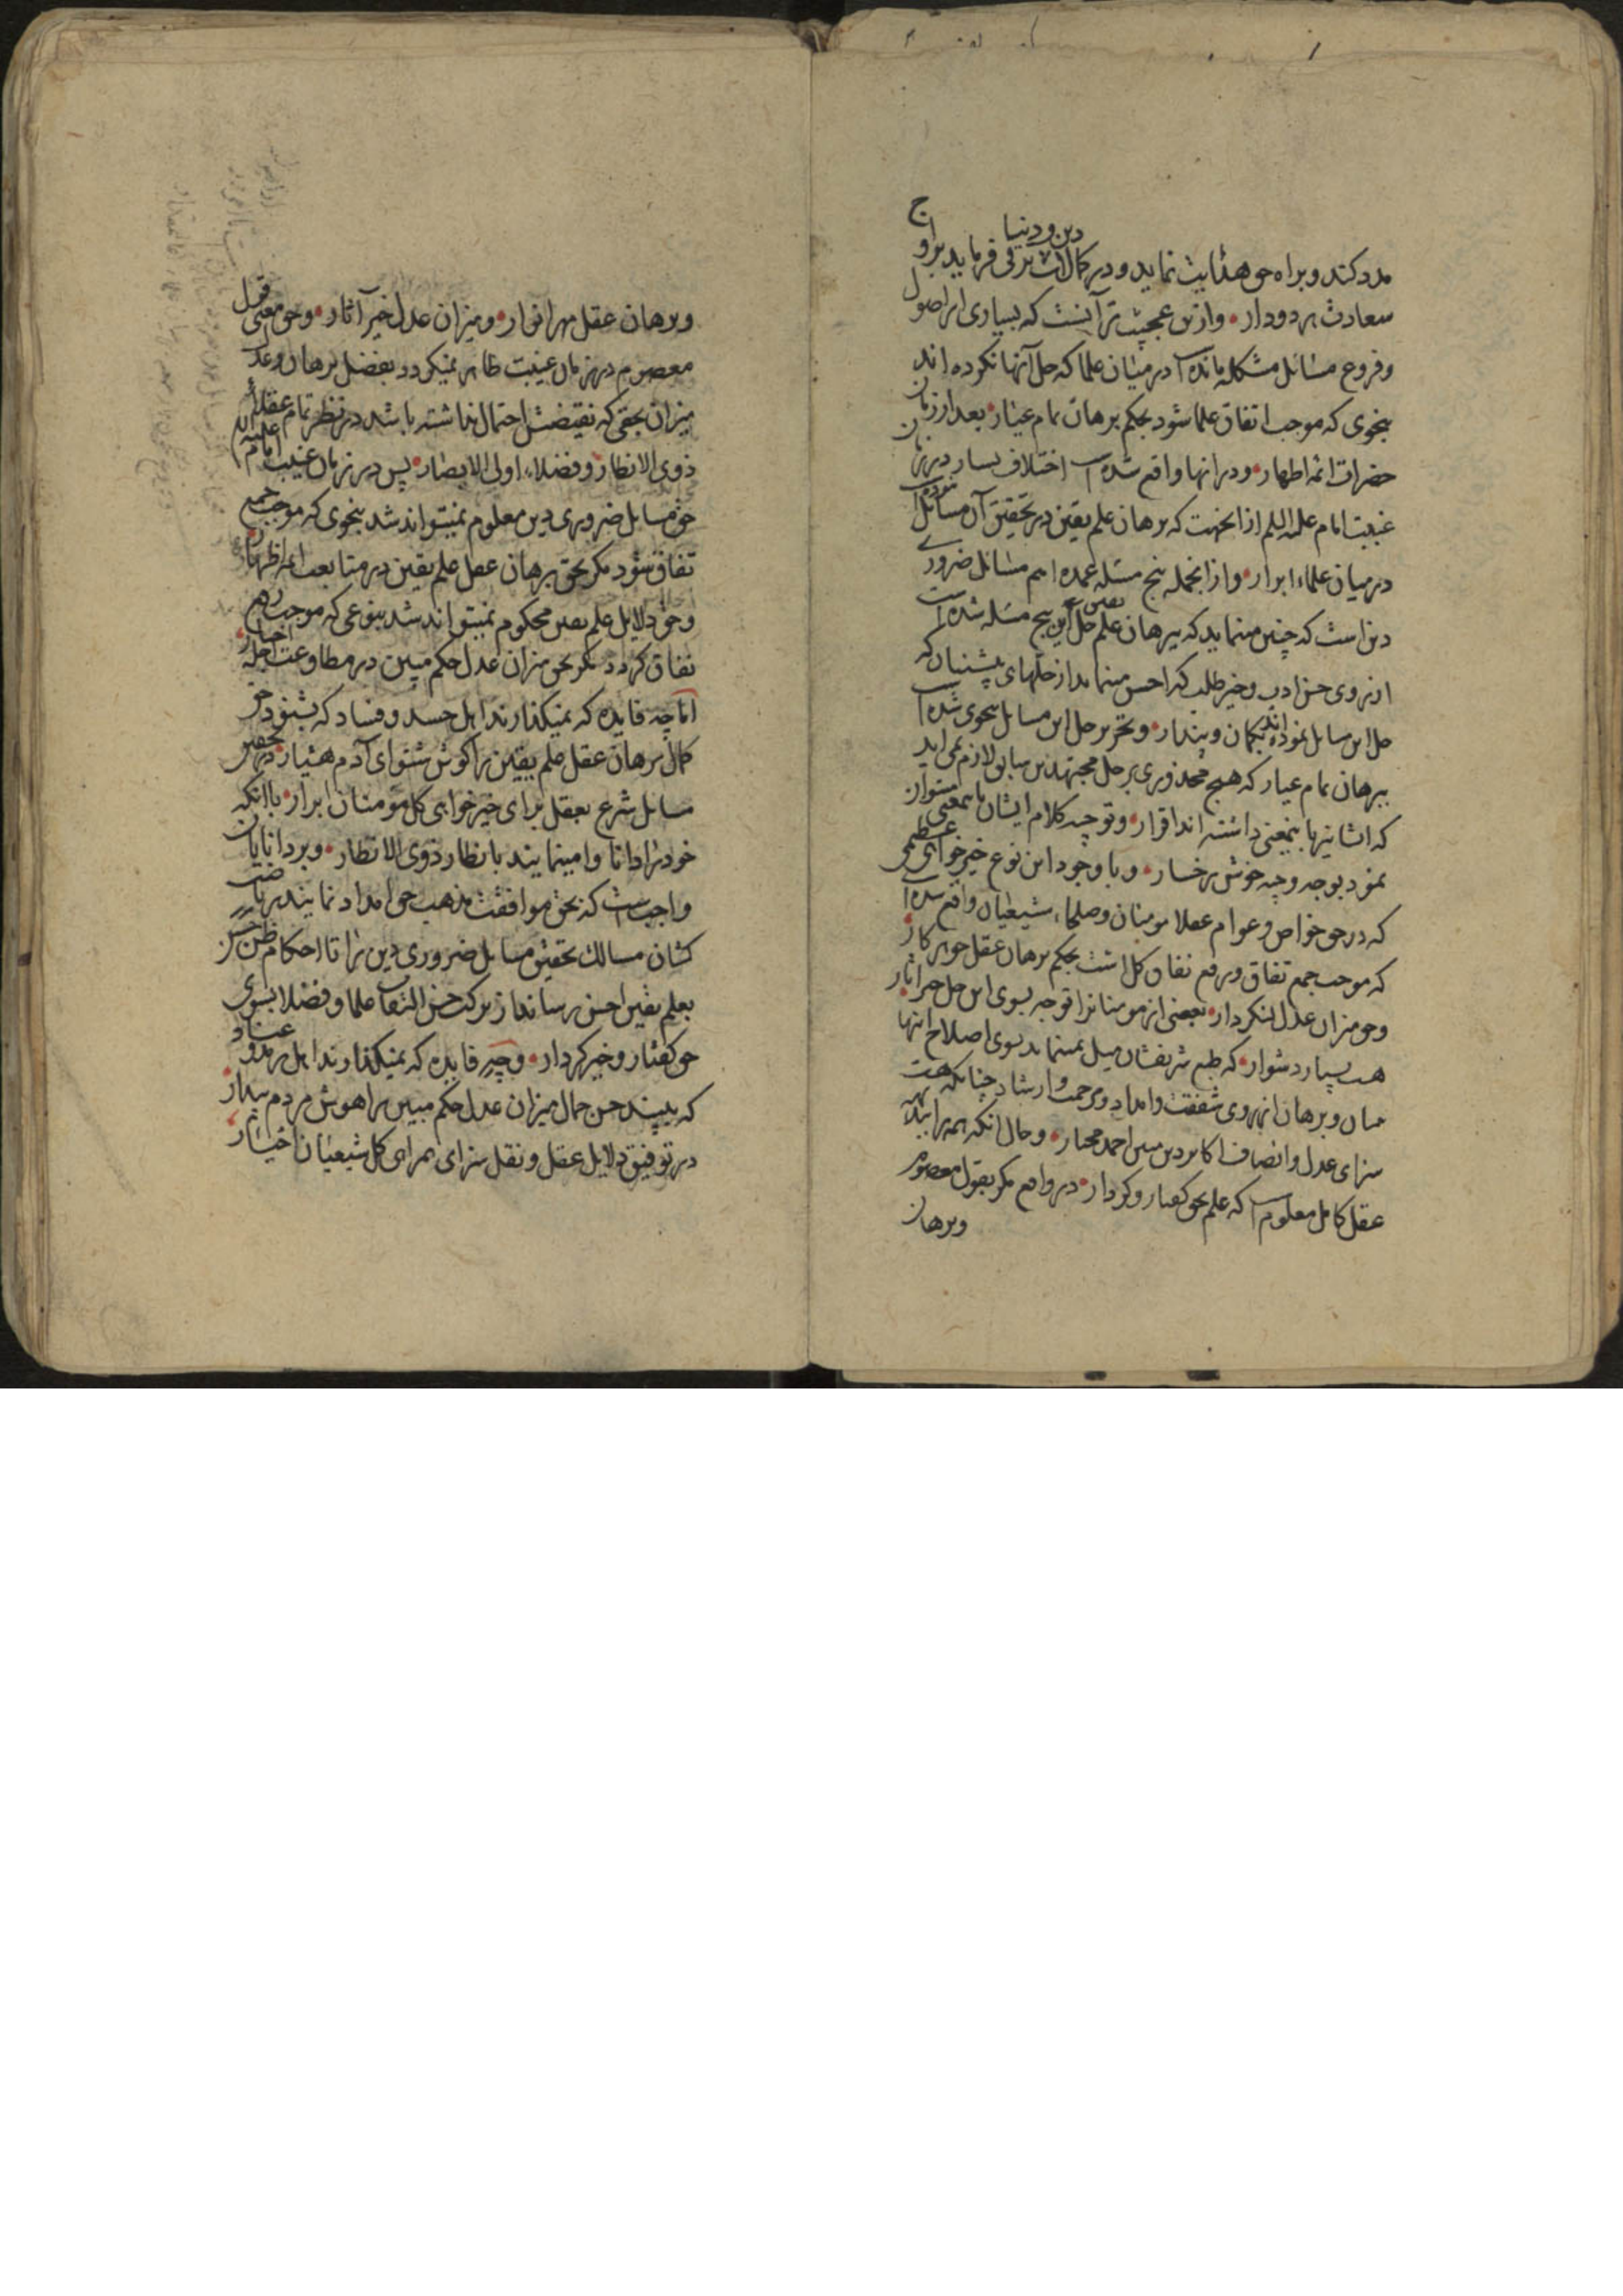 ج
دین و دنیا
مدد کند و براه حق هدایت نماید و در کمالات ترقی فرماید براو
سعادت بر دودار • وازین عجیب تر آنست که بسیاری از اصول
و فروع مسائل مشکله مانده است در میان علما که حل آنها نکرده اند
بنحوی که موجب اتفاق علما شود بحکم برهان تمام عیار • بعد از زمان
حضرات ائمه اطهار • و در انها واقع شده است اختلاف بسیار در زمان
غیبت امام علیه السلم از انجهت که برهان علم یقین در تحقیق آن مسائل نبوده است
در میان علماء ابرار • و از انجمله پنج مسئله عمده اهم مسائل ضروری
دین است که چنین مینماید که ببرهان علم یقین حل این پنج مسئله شده است
از روی حسن ادب و خیر طلب که احسن مینماید از حلهای پیشینیان که
حل این مسایل نموده اند بگمان و پندار • و تحریر حل این مسایل بنحوی شده است
ببرهان تمام عیار که هیچ محذوری بر حل مجتهدین سابق لازم نمی اید
که ایشانرا باینمعنی داشته اند اقرار • و توجیه کلام ایشان باینمعنی میتوان
نمود بوجه وجیه خوش رخسار • و با وجود این نوع خیرخواهی عظمی
که در حق خواص و عوام عقلا مومنان و صلحاء شیعیان واقع شده است
که موجب جمع تفاق و رفع نفاق کل است بحکم برهان عقل جوهر کار •
و حق میزان عدل لنکردار • بعضی از مومنانرا توجه بسوی این حل خیر اثار •
هست بسیار دشوار • که طبع شریفشان میل نمینماید بسوی اصلاح اینها
میان و برهان از روی شفقت و امداد و مرحمت و ارشاد چنانکه هست
سزای عدل و انصاف اکابر دین مبین احمد مختار • و حال انکه همه را ببدیهه
عقل کامل معلوم است که علم بحق گفتار و کردار • در واقع مگر بقول معصوم
و برهان
و برهان عقل مهر انوار • و میزان عدل خیر آثار • و حق معنی قول
معصوم در زمان غیبت ظاهر نمیکردد بفضل برهان و عدل
میزان بحقی که نقیضش احتمال نداشته باشد در نظر تمام عقلاء
ذوی الانظار و فضلاء اولی الابصار • پس در زمان غیبت امام علیه السلم
حق مسایل ضروری دین معلوم نمیتواند شد بنحوی که موجب جمیع
تفاق شود مگر بحق برهان عقل علم یقین در متابعت ائمه اطهار
و حق دلایل علم یقین محکوم نمیتواند شد بنوعی که موجب رفع
نفاق کردد مگر بحق میزان عدل حکم مبین در مطاوعت اجله اخیار •
اما چه فایده که نمیگذارند اهل حسد و فساد که بشنود حق
کمال برهان عقل علم یقین را گوش شنوای آدم هشیار • در تحقیق
مسایل شرع بعقل برای خیرخواهی کل مومنان ابرار • با انکه
خود را دانا وامینمایند بانظار ذوی الانظار • و بر دانایان
واجب است که بحق موافقت مذهب حق امداد نمایند ریاضت
کشان مسالک تحقیق مسایل ضروری دین را تا احکام ظن حسن
بعلم یقین احسن رسانند از برکت حسن التفات علما و فضلا بسوی
حق گفتار و خیر کردار • و چه فایده که نمیگذارند اهل رد و عناد
که ببیند حسن جمال میزان عدل حکم مبین را هوش مردم بیدار •
در توفیق دلایل عقل و نقل سزای همراهی کل شیعیان اختیار •